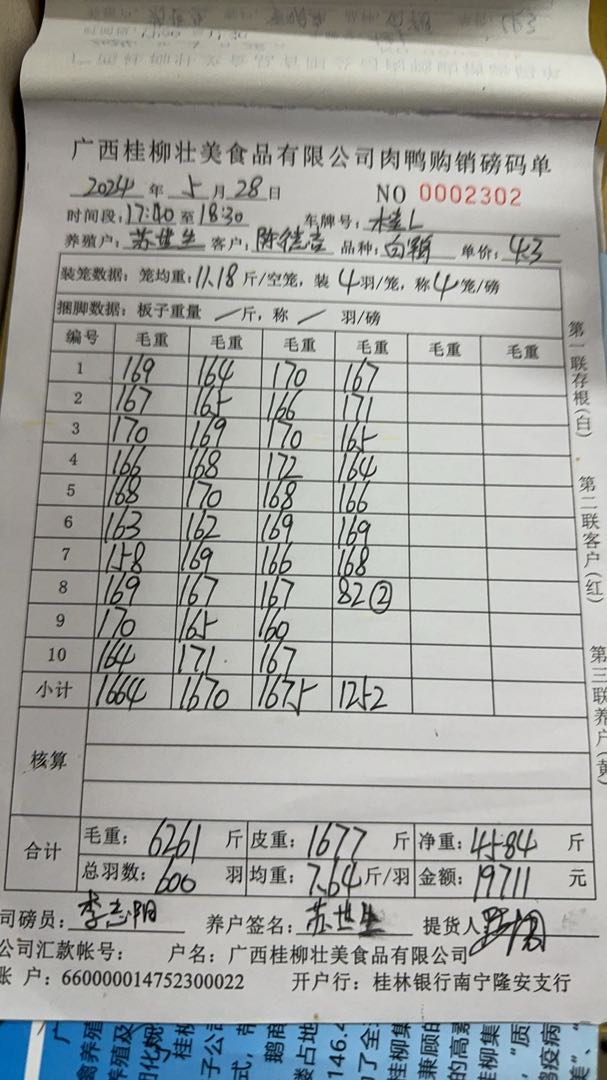 广西桂柳壮美食品有限公司肉鸭购销磅码单
2024 年 5 月 28 日 NO 0002302
时间段:17:40 至 18:30 车牌号: 桂L
养殖户: 苏世生 客户: 陈德吉 品种: 白颖 单价: 4.3
装笼数据: 笼均重: 11.18 斤/空笼, 装 4 羽/笼, 称 4 笼/磅
捆脚数据: 板子重量 / 斤, 称 / 羽/磅
编号 毛重 毛重 毛重 毛重 毛重 毛重
1 169 164 170 167
2 167 165 166 171
3 170 169 170 165
4 166 168 172 164
5 168 170 168 166
6 163 162 169 169
7 158 169 166 168
8 169 167 167 82②
9 170 165 160
10 164 171 167
小计 1664 1670 1675 1252
核算
合计 毛重: 6261 斤 皮重: 1677 斤 净重: 4584 斤
总羽数: 600 羽 均重: 7.64 斤/羽 金额: 19711 元
司磅员: 李志阳 养户签名: 苏世生 提货人
公司汇款帐号: 户名: 广西桂柳壮美食品有限公司
账 户: 660000014752300022 开户行: 桂林银行南宁隆安支行
第一联存根(白)
第二联客户(红)
第三联养户(黄)